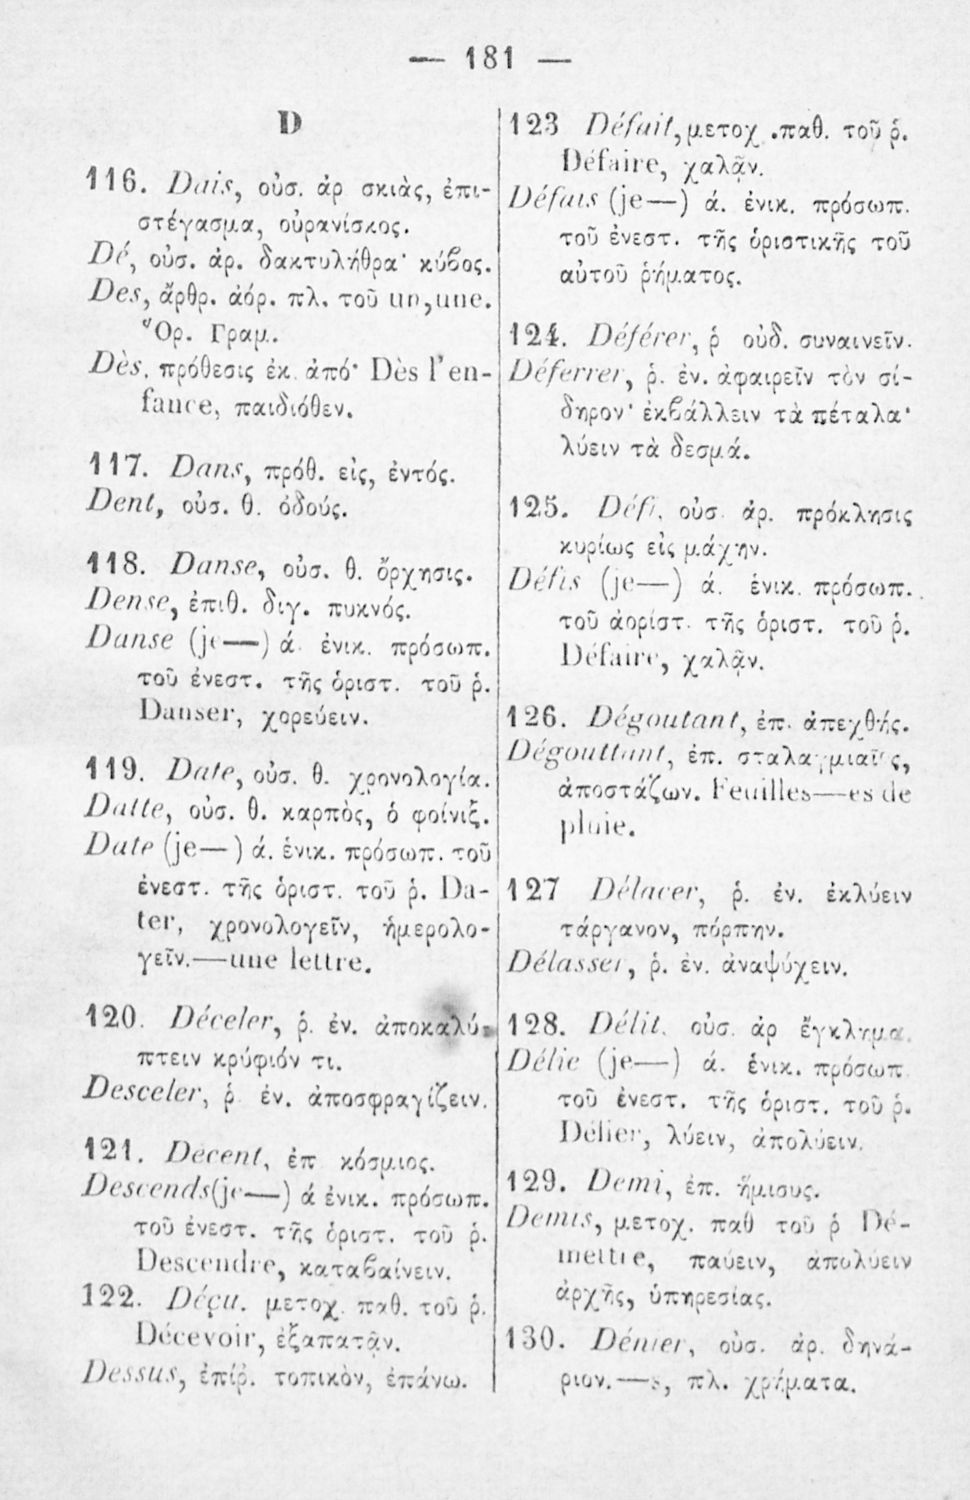 — 181 —
D
116. Dais, οὐσ. ἀρ σκιὰς, ἐπι-
στέγασμα, οὐρανίσκος.
Dé, οὐσ. ἀρ. δακτυλήθρα· κύβος.
Des, ἄρθρ. ἀόρ. πλ. τοῦ un, une.
Ὅρ. Γραμ.
Dès, πρόθεσις ἐκ. ἀπό· Dès l'en-
fance, παιδιόθεν.
117. Dans, πρόθ. εἰς, ἐντός.
Dent, οὐσ. θ. ὀδούς.
118. Danse, οὐσ. θ. ὄρχησις.
Dense, ἐπιθ. διγ. πυκνός.
Danse (je—) ά. ἑνικ. πρόσωπ.
τοῦ ἐνεστ. τῆς ὁριστ. τοῦ ῥ.
Danser, χορεύειν.
119. Date, οὐσ. θ. χρονολογία.
Datte, οὐσ. θ. καρπὸς, ὁ φοίνιξ.
Date (je—) ά. ἑνικ. πρόσωπ. τοῦ
ἐνεστ. τῆς ὁριστ. τοῦ ῥ. Da-
ter, χρονολογεῖν, ἡμερολο-
γεῖν.—une lettre.
120. Déceler, ῥ. ἐν. ἀποκαλύ-
πτειν κρύφιόν τι.
Desceler, ῥ. ἐν. ἀποσφραγίζειν.
121. Decent, ἐπ κόσμιος.
Descends(je—) ά ἑνικ. πρόσωπ.
τοῦ ἐνεστ. τῆς ὁριστ. τοῦ ῥ.
Descendre, καταβαίνειν.
122. Déçu. μετοχ. παθ. τοῦ ῥ.
Décevoir, ἐξαπατᾷν.
Dessus, ἐπίῤ. τοπικὸν, ἐπάνω.
123 Défait, μετοχ .παθ. τοῦ ῥ.
Défaire, χαλᾷν.
Défais (je—) ά. ἑνικ. πρόσωπ.
τοῦ ἐνεστ. τῆς ὁριστικῆς τοῦ
αὐτοῦ ῥήματος.
124. Déférer, ῥ οὐδ. συναινεῖν.
Déferrer, ῥ. ἐν. ἀφαιρεῖν τὸν σί-
δηρον· ἐκβάλλειν τὰ πέταλα·
λύειν τὰ δεσμά.
125. Défi, οὐσ ἀρ. πρόκλησις
κυρίως εἰς μάχην.
Défis (je—) ά. ἑνικ. πρόσωπ.
τοῦ ἀορίστ. τῆς ὁριστ. τοῦ ῥ.
Défaire, χαλᾷν.
126. Dégoutant, ἐπ. ἀπεχθής.
Dégouttant, ἐπ. σταλαγμιαῖος,
ἀποστάζων. Feuilles—es de
pluie.
127 Délacer, ῥ. ἐν. ἐκλύειν
τάργανον, πόρπην.
Délasser, ῥ. ἐν. ἀναψύχειν.
128. Délit. οὐσ. ἀρ ἔγκλημα.
Délie (je—) ά. ἑνικ. πρόσωπ
τοῦ ἐνεστ. τῆς ὁριστ. τοῦ ῥ.
Délier, λύειν, ἀπολύειν.
129. Demi, ἐπ. ἥμισυς.
Demis, μετοχ. παθ τοῦ ῥ Dé-
mettre, παύειν, ἀπολύειν
ἀρχῆς, ὑπηρεσίας.
130. Dénier, οὐσ. ἀρ. δηνά-
ριον.—s, πλ. χρήματα.